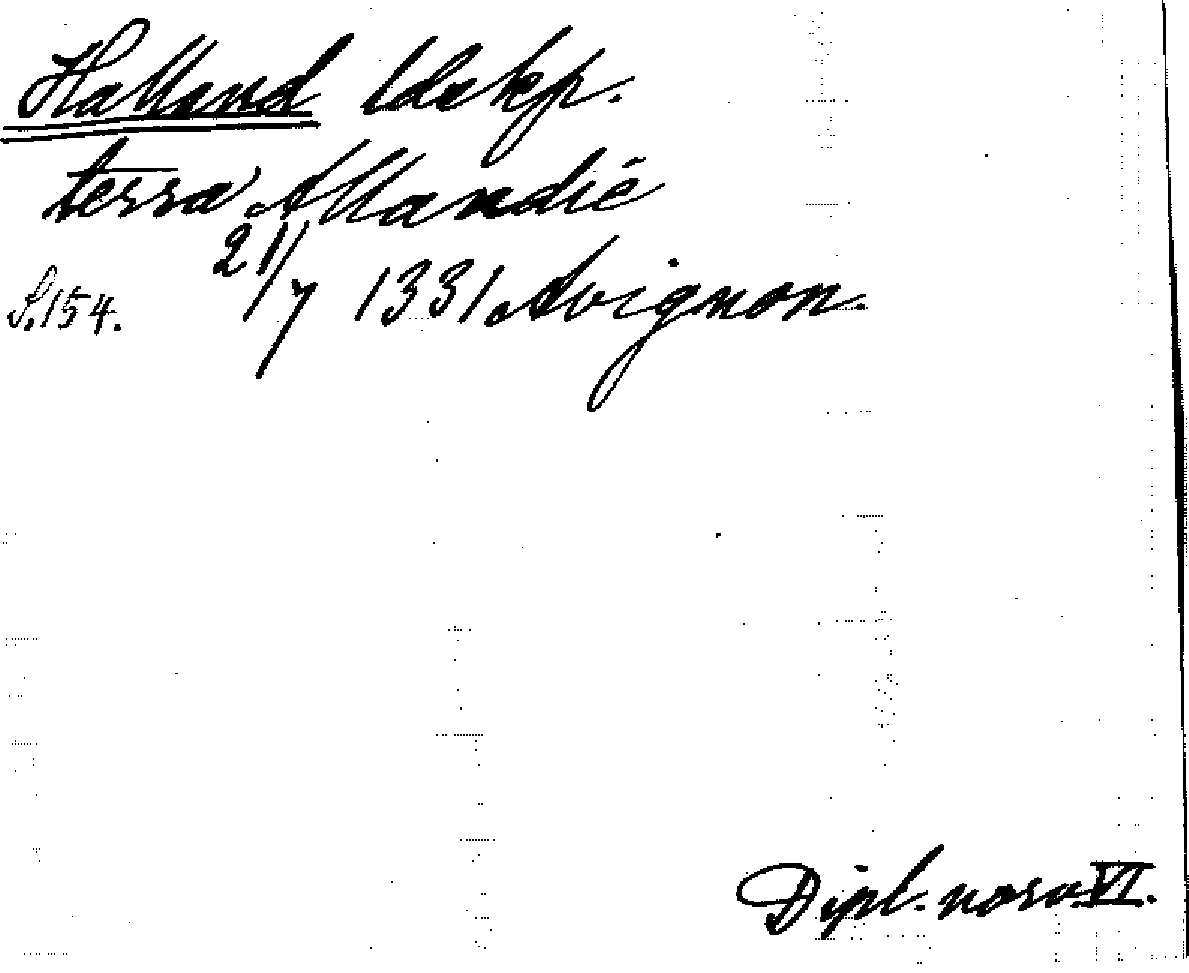 Halland ldskp.
terra Allandie
S.154. 21/7 1331 Avignon.
Dipl. norv. VI.